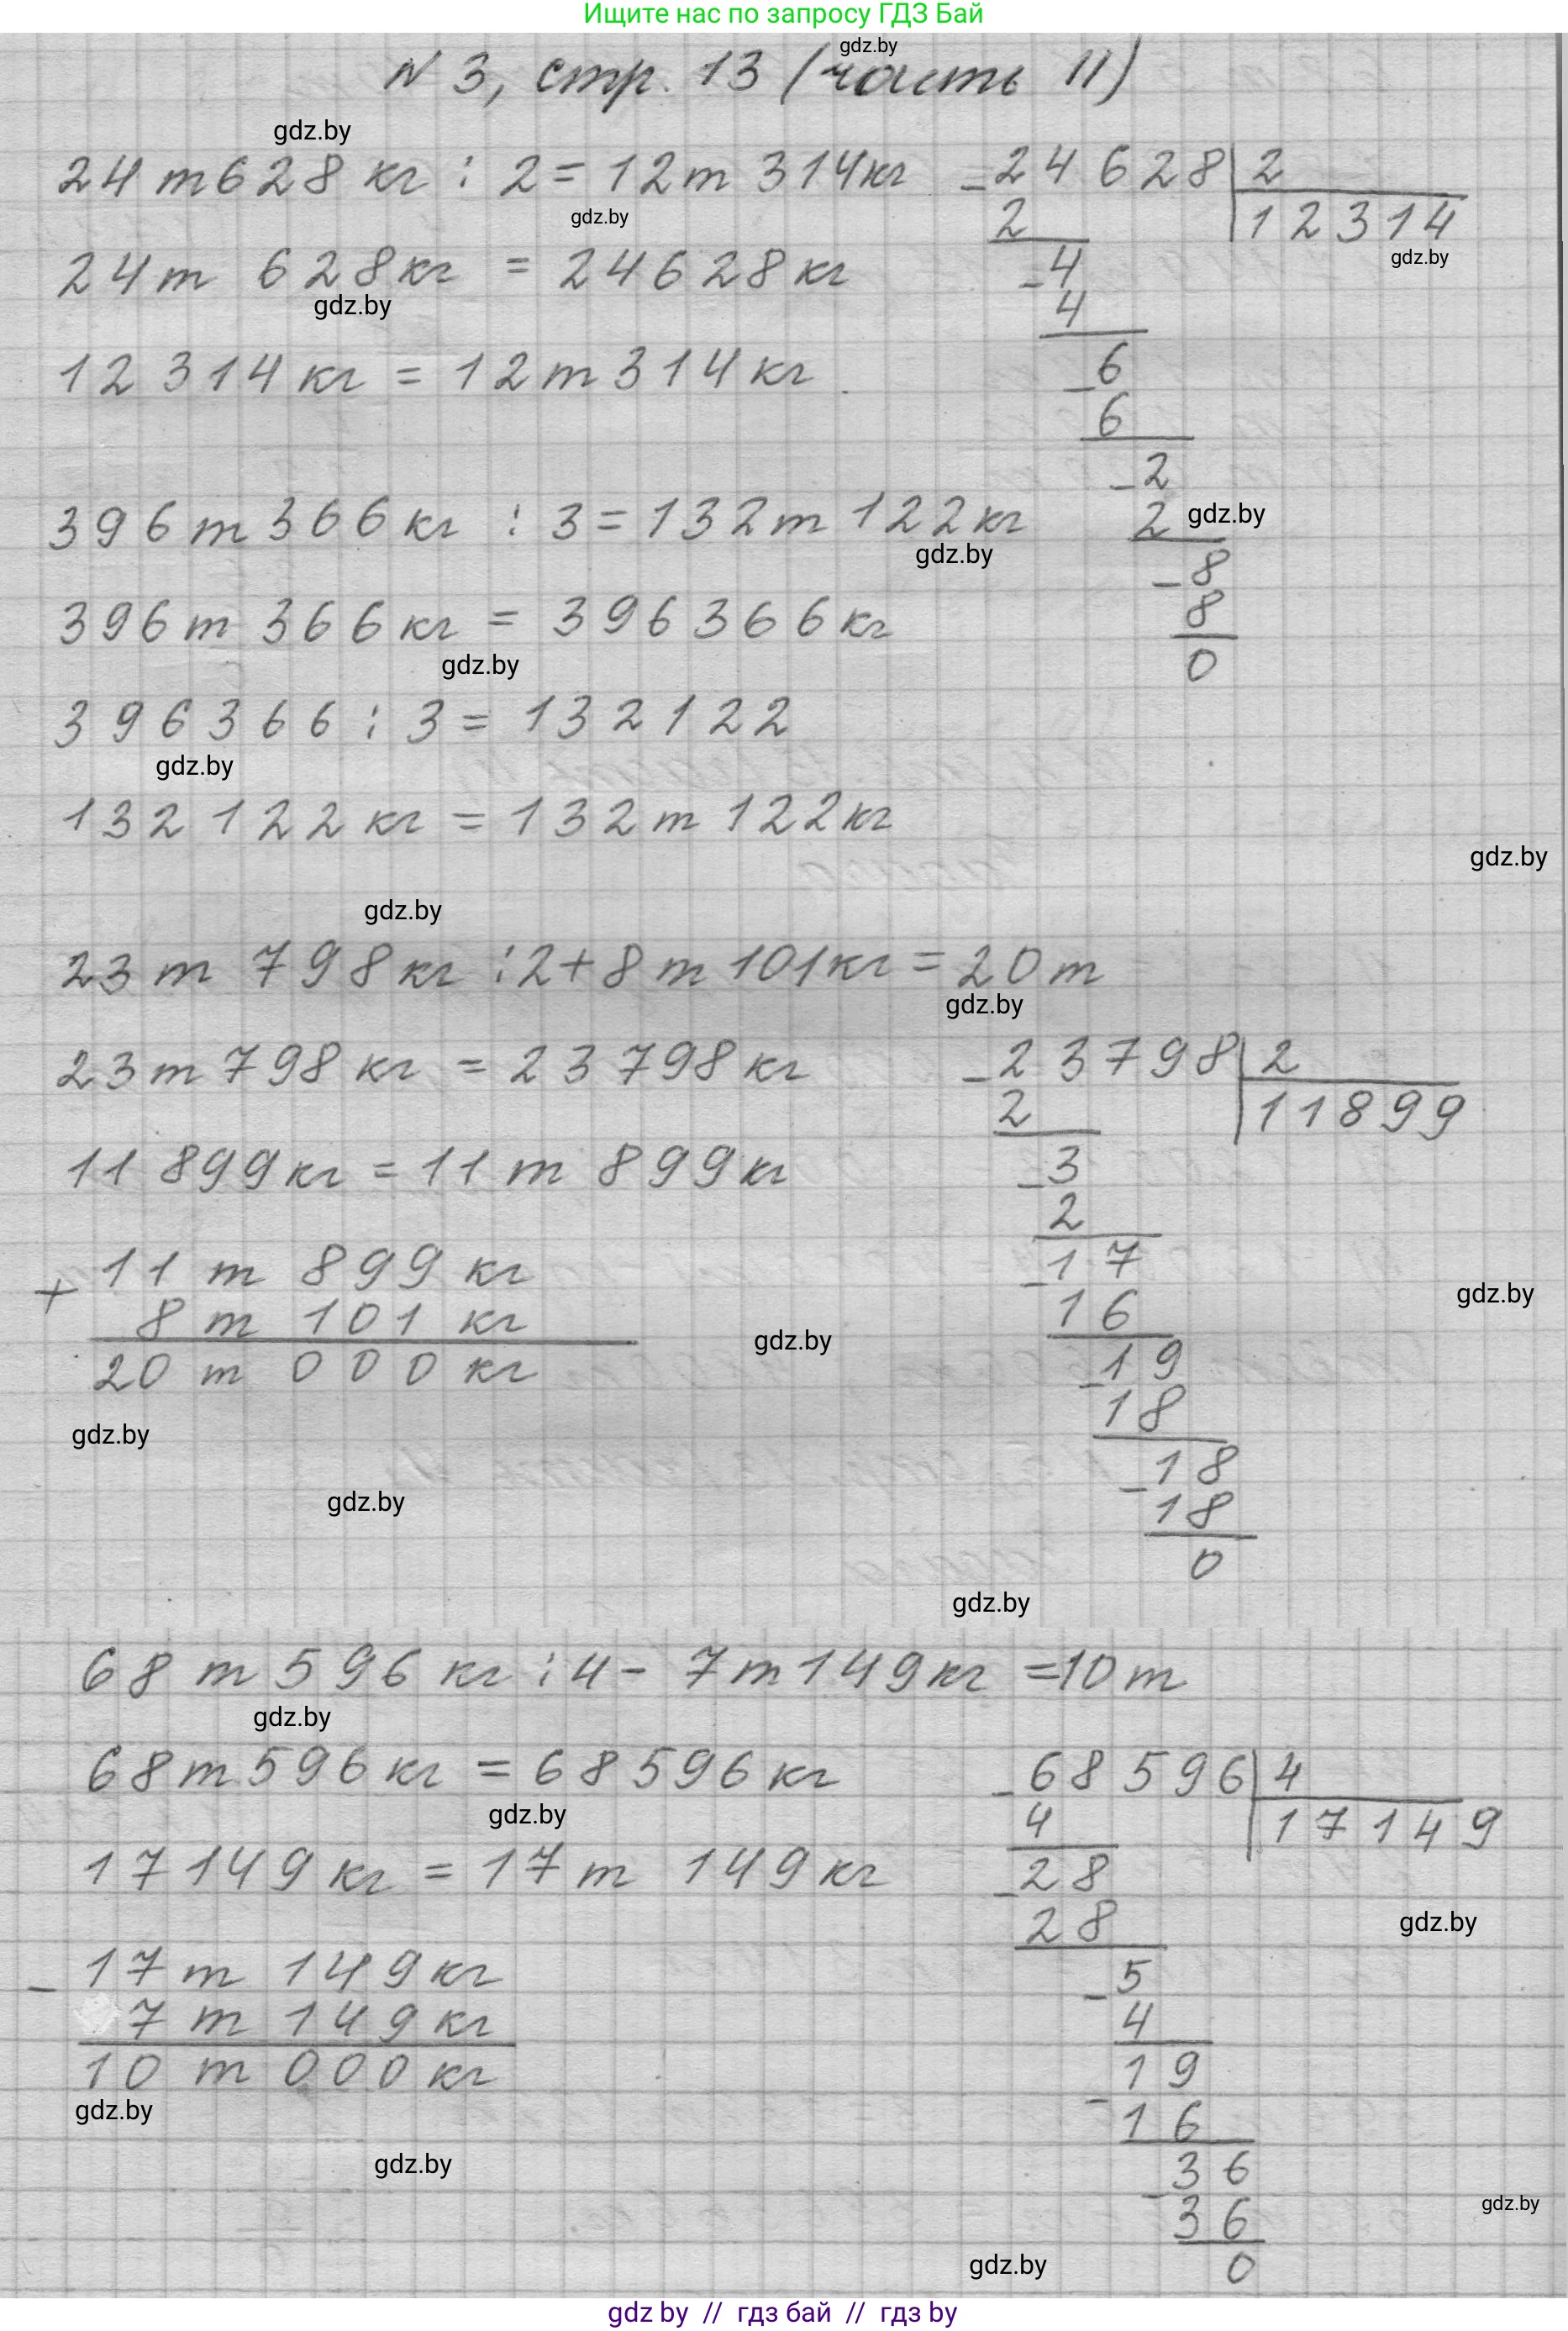 Ищите нас по запросу ГДЗ Бай
gdz.by
N 3, стр. 13 (часть II)
gdz.by
24 т 628 кг : 2 = 12 т 314 кг
gdz.by
24 т 628 кг = 24628 кг
gdz.by
12 314 кг = 12 т 314 кг
- 24628 | 2
2
12314
gdz.by
- 4
4
- 6
6
- 2
2
gdz.by
- 8
8
0
396 т 366 кг : 3 = 132 т 122 кг
gdz.by
396 т 366 кг = 396366 кг
gdz.by
396366 : 3 = 132122
gdz.by
132 122 кг = 132 т 122 кг
gdz.by
gdz.by
23 т 798 кг : 2 + 8 т 101 кг = 20 т
gdz.by
23 т 798 кг = 23 798 кг
11 899 кг = 11 т 899 кг
+ 11 т 899 кг
8 т 101 кг
20 т 000 кг
gdz.by
gdz.by
gdz.by
- 23798 | 2
2
11899
- 3
2
- 17
16
gdz.by
- 19
18
- 18
18
0
gdz.by
68 т 596 кг : 4 - 7 т 149 кг = 10 т
gdz.by
68 т 596 кг = 68596 кг
gdz.by
17149 кг = 17 т 149 кг
- 17 т 149 кг
7 т 149 кг
10 т 000 кг
gdz.by
gdz.by
- 68596 | 4
4
17149
- 28
28
gdz.by
- 5
4
- 19
16
- 36
36
gdz.by
0
gdz.by
gdz by // гдз бай // гдз by